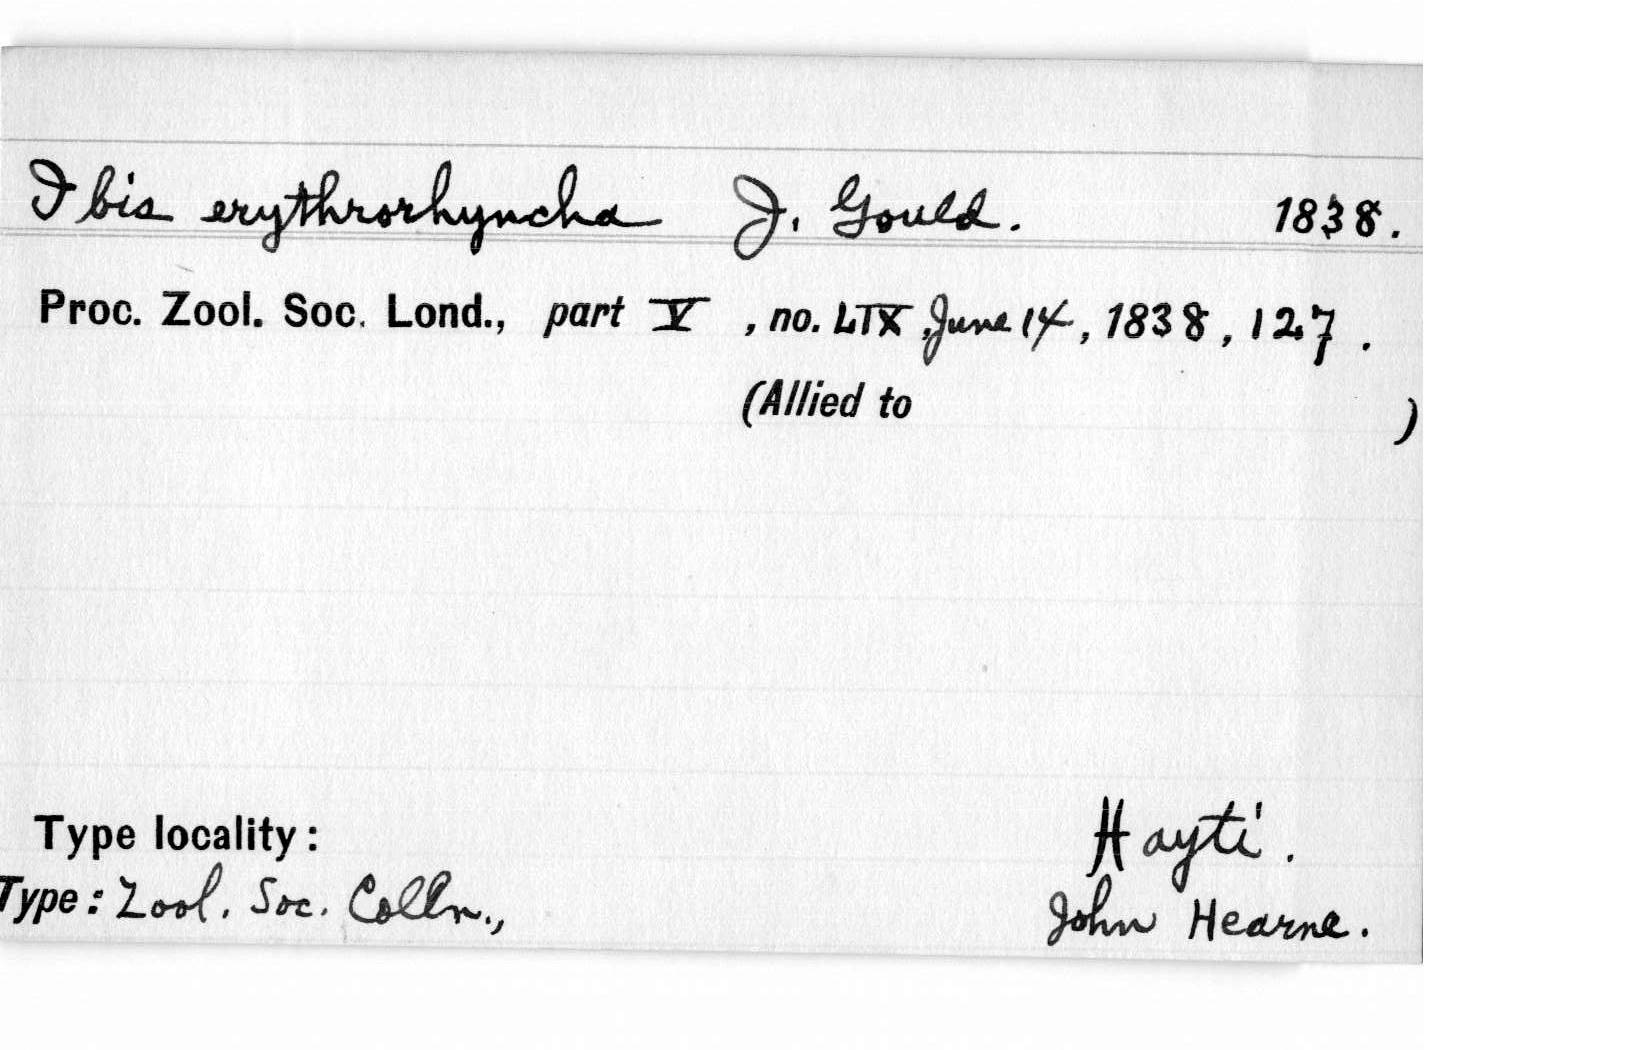 Ibis erythrorhyncha J. Gould. 1838.
Proc. Zool. Soc. Lond., part V, no. LIX, June 14, 1838, 127.
(Allied to )
Type locality: Hayti.
Type: Zool. Soc. Colln., John Hearne.